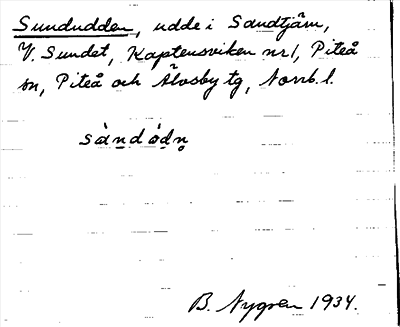 Sundudden, udde i Sandtjärn,
V. Sundet, Kaptensviken nr 1, Piteå
sn, Piteå och Älvsby tg, Norrb. l.
sàndódn̥
B. Nygren 1934.